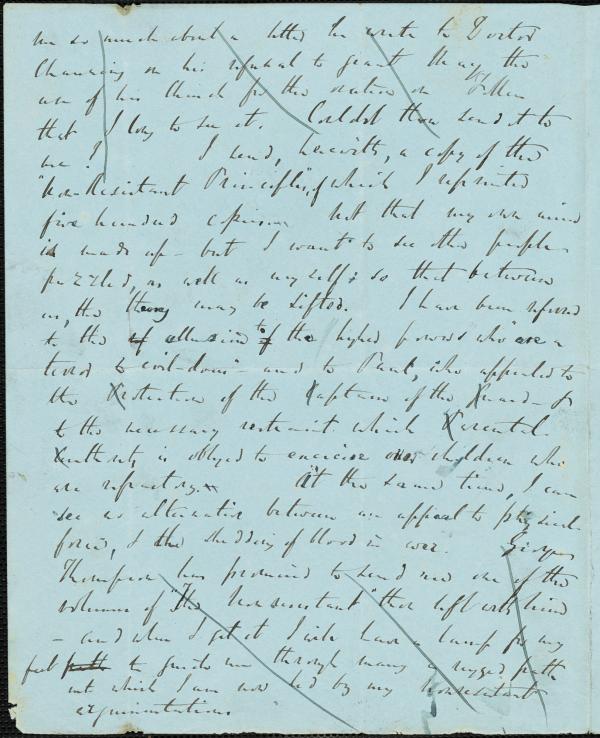 me so much about a letter he wrote to Doctor
Channing on his refusal to grant May the
use of his Church for the oration on Follen
that I long to see it. Couldst thou send it to
me! I send, herewith, a copy of the
"Non-Resistant Principles", of which I reprinted
five hundred copies not that my own mind
is made up - but I want to see other people
puzzled, as well as myself; so that between
us, the theory may be sifted. I have been referred
to the allusion to the higher powers who "are a
terror to evil-doers" - and to Paul, who appealed to
the Protection of the Captain of the Guard - &
to the necessary restraint which Parental
Authority is obliged to exercise over children who
are refractory. At the same time, I can
see no alternative between an appeal to physical
force, & the shedding of blood in war. George
Thompson has promised to send me one of the
volumes of "the Non resistant" thou left with him
- and when I get it I will have a lamp for my
feet to guide me through many a rugged path
into which I am now led by my nonresistant
argumentations